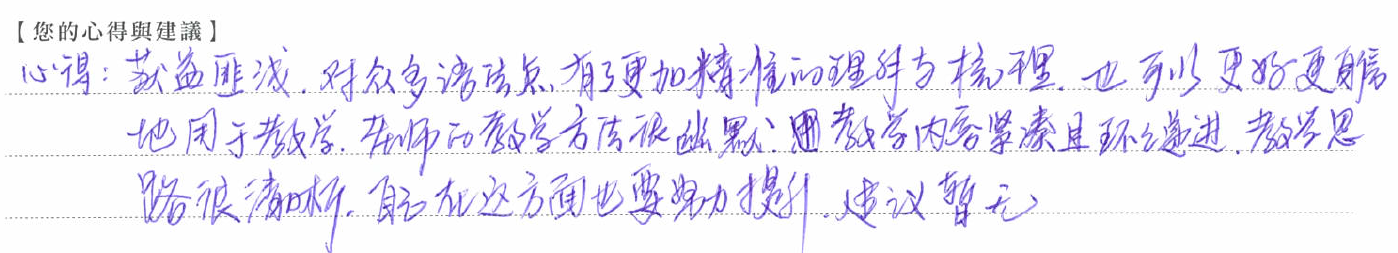 【您的心得與建議】
心得：获益匪浅．对众多语法点．有了更加精准的理解与梳理．也可以更好更自信
地用于教学．老师的教学方法很幽默．教学内容紧凑且环环递进．教学思
路很清晰．自己在这方面也要努力提升．建议暂无